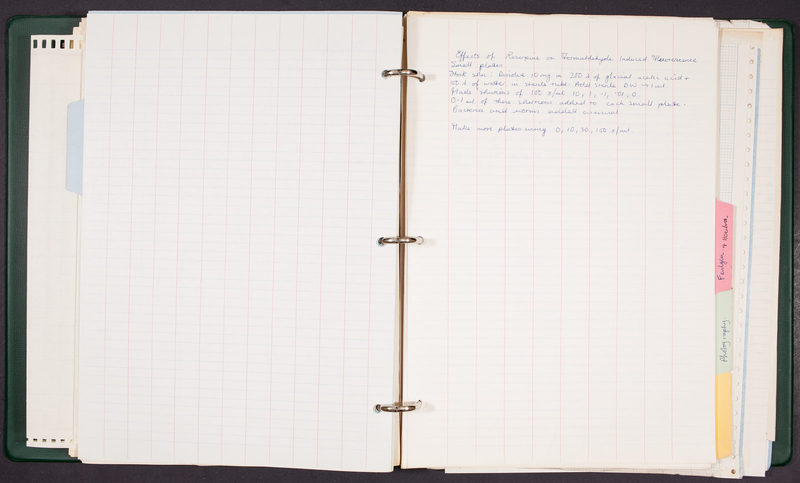 Effects of Reserpine on Formaldehyde Induced Fluorescence
Small plates
Stock soln: Dissolve 10 mg in 200 λ of glacial acetic acid +
λ of water in sterile tube. Add sterile DW → 1 ml.
Made solutions of 100 γ/ml 10, 1, .1, .01, 0.
0.1 ml of these solutions added to each small plate.
Bacteria and worms added as usual
Make more plates using 0, 10, 30, 100 γ/ml.
Feulgen + Hoechst.
Photography.